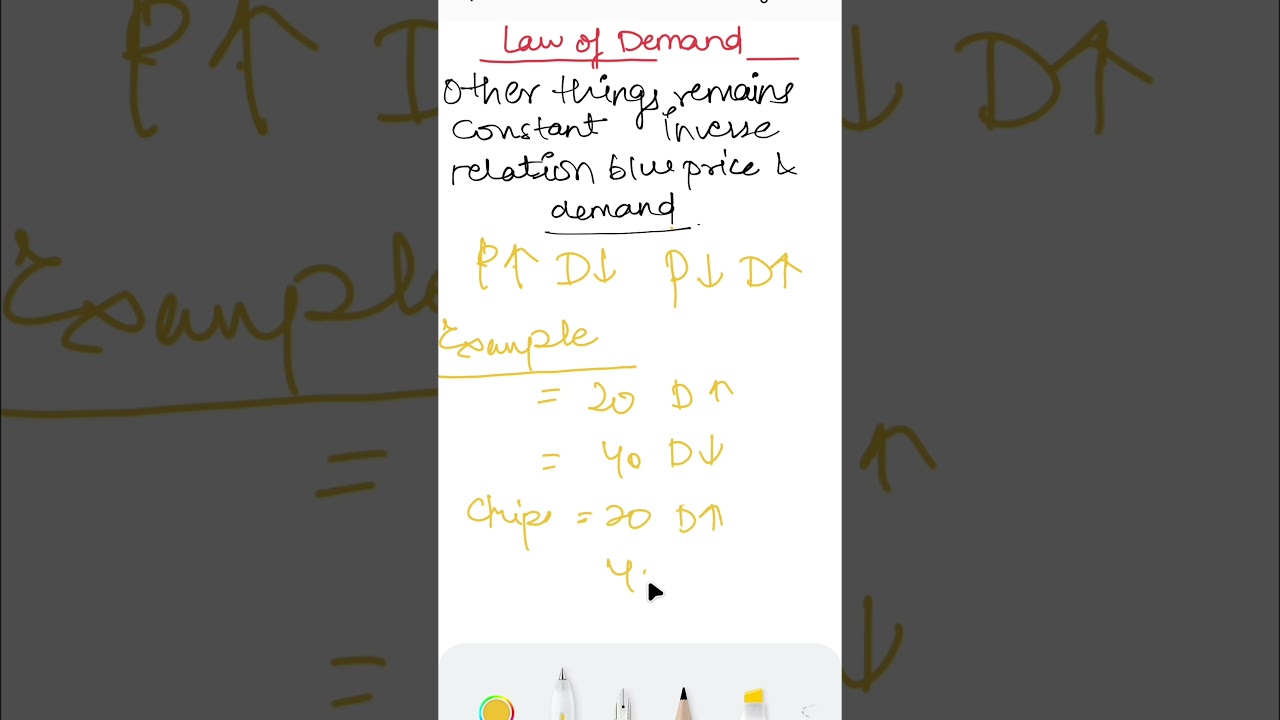 Law of Demand
Other things remains
constant inverse
relation b/w price &
demand
P↑ D↓ P↓ D↑
Example
= 20 D↑
= 40 D↓
Chips = 20 D↑
4